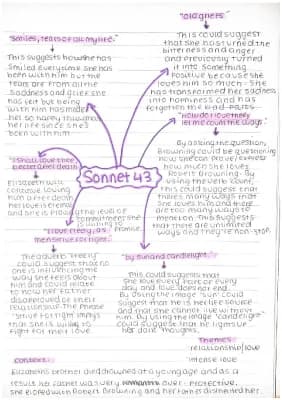 "old griefs"
This could suggest
that she has turned the
bitterness and anger
and previously turned
it into something
positive because she
loves him so much. She
has transformed her sadness
into happiness and has
forgotten the bad parts.
"Smiles, tears of all my life."
This suggests how she has
smiled everytime she has
been with him but the
tears are from all the
saddness and grief she
has felt but being
with him has made
her so happy throughout
her life since she's
been with him.
"How do I love thee?
let me count the ways."
By asking the question,
Browning could be questioning
how she can prove/express
how much she loves
Robert Browning. By
using the verb 'count'
this could suggest that
there many ways that
she loves him and there
are too many ways to
mention. This suggests
that there are unlimited
ways and they're non-stop.
Sonnet 43
"I shall love thee
better after death"
Elizabeth will
continue loving
him after death.
Her love is eternal
and she is proving the level of
commitment she
is willing to
promise.
"I love thee freely, as
men strive for right."
The adverb "freely"
could suggest that no
one is influencing the
way she feels about
him and could relate
to how her father
disapproved of their
relationship. The phrase
"strive for right" implys
that she is willing to
fight for their love
"by sun and candlelight."
This could suggests that
she love every part of every
day and love does not end.
By using the image "sun" could
suggest that he is her life source
and that she cannot live without
him. By using the image "candlelight"
could suggest that he lights up
her dark thoughts.
Themes:
relationship/love
intense love
Context:
Elizabeth's brother died drowned at young age and as a
result her father was very over-protective.
She eloped with Robert Browning and her father disinherited her.